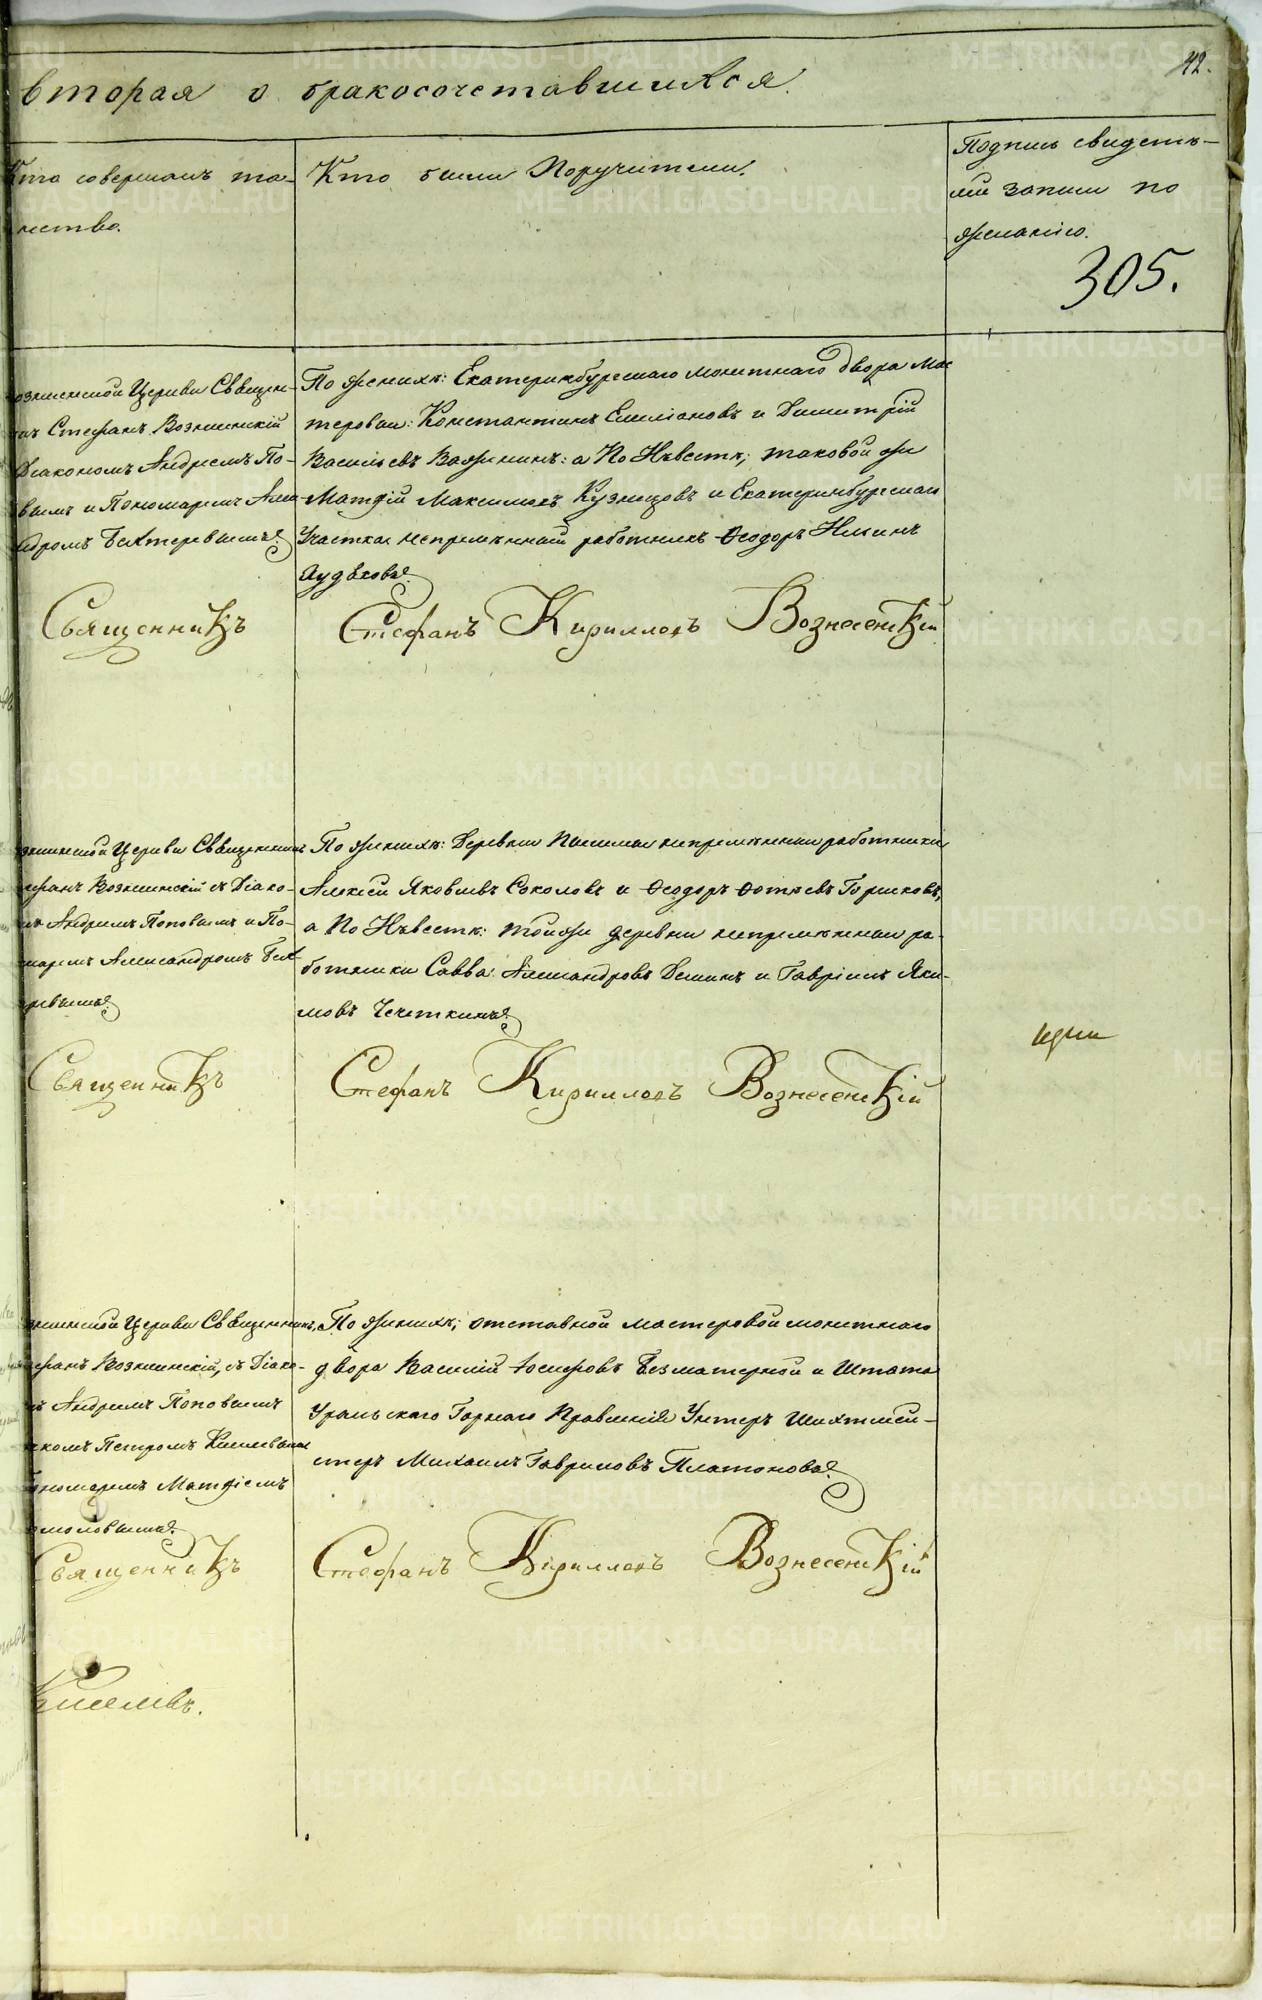 42.
вторая о бракосочетавшихся.
Кто совершалъ та-
инство.
Кто были Поручители.
Подпись свидѣте-
лей записи по
желанію.
305.
Церкви Священ-
Стефанъ Вознесенскій
Діакономъ Андреемъ По-
вымъ и Пономаремъ Алек-
ндромъ Бехтеревымъ
По женихѣ: Екатеринбургскаго монетнаго двора Мас
теровые: Константинъ Емеліановъ и Димитрій
Васильевъ Важенинъ: а По Невѣстѣ; таковой же
Матфій Максимовъ Кузнецовъ и Екатеринбургскаго
Участка непремѣнный работникъ Ѳеодоръ Ильинъ
Священникъ Стефанъ Кирилловъ Вознесенскій
Церкви Священникъ
Вознесенскій съ Діако-
Андреемъ Поповымъ и По-
номаремъ Александромъ Бех
теревымъ
По женихѣ: Деревни непремѣнныи работники
Алексѣй Яковлевъ Соколовъ и Ѳеодоръ Ѳотѣевъ Горшковъ,
а По Невѣстѣ: тойже деревни непремѣнныи ра-
ботники Савва Александровъ Деминъ и Гавріилъ Яки-
мовъ Чечеткинъ
Священникъ Стефанъ Кирилловъ Вознесенскій
Церкви Священникъ,
Вознесенскій, съ Діако-
Андреемъ Поповымъ
Петромъ Киселевымъ
Пономаремъ Матфіемъ
По женихѣ; отставной мастеровой монетнаго
двора Василій Іосифовъ Безматерной и Штата
Уральскаго Горнаго Правленія Унтеръ Шихтмей-
стеръ Михаилъ Гавриловъ Платоновъ
Священникъ Стефанъ Кирилловъ Вознесенскій
Киселевъ.
METRIKI.GASO-URAL.RU